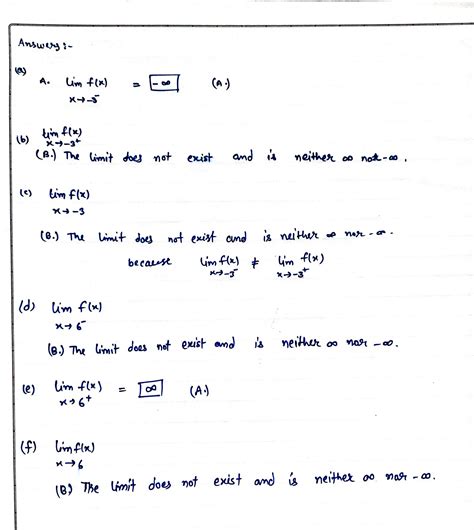 Answers :-
(a)
A. lim f(x) = -∞ (A.)
x→-3⁻
(b) lim f(x)
x→-3⁺
(B.) The limit does not exist and is neither ∞ nor -∞.
(c) lim f(x)
x→-3
(B.) The limit does not exist and is neither ∞ nor -∞.
because lim f(x) ≠ lim f(x)
x→-3⁻ x→-3⁺
(d) lim f(x)
x→6⁻
(B.) The limit does not exist and is neither ∞ nor -∞.
(e) lim f(x) = ∞ (A.)
x→6⁺
(f) lim f(x)
x→6
(B) The limit does not exist and is neither ∞ nor -∞.